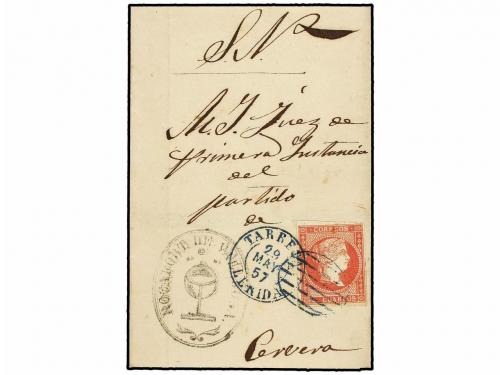 S. N.
M. I. Juez de
primera Instancia
del
partido
de
Cervera
TARREGA
29
MAY
57
LERIDA
CORREOS
CUARTOS
ROCAFORT DE